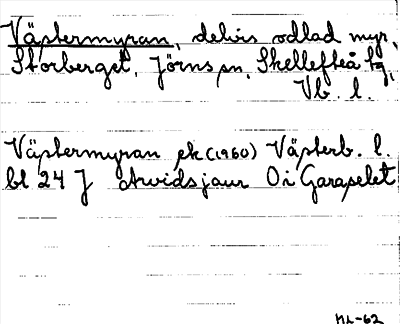 Västermyran, delvis odlad myr,
Storberget, Jörns sn, Skellefteå tg,
Vb. l.
Västermyran ek (1960) Västerb. l.
bl 24 J Arvidsjaur Öi Garaselet
ML-62